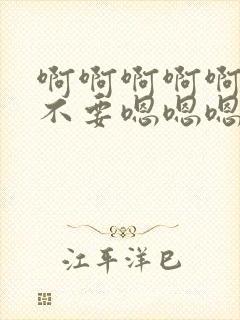 啊啊啊啊啊
不要嗯嗯嗯
江平洋巳